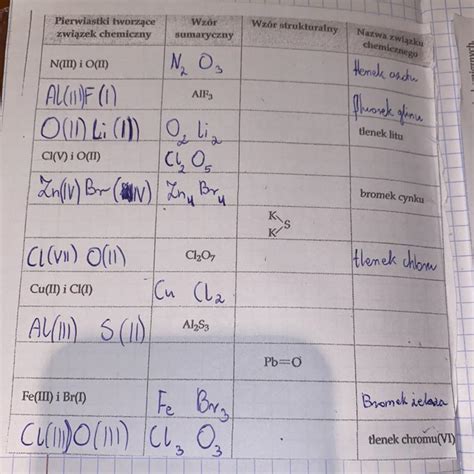 Pierwiastki tworzące związek chemiczny Wzór sumaryczny Wzór strukturalny Nazwa związku chemicznego
N(III) i O(II) N2 O3 tlenek azotu
Al(III) F(I) AlF3 fluorek glinu
O(II) Li(I) O2 Li2 tlenek litu
Cl(V) i O(II) Cl2 O5
Zn(IV) Br(IV) Zn4 Br4 bromek cynku
K
S
K
Cl(VII) O(II) Cl2O7 tlenek chloru
Cu(II) i Cl(I) Cu Cl2
Al(III) S(II) Al2S3
Pb=O
Fe(III) i Br(I) Fe Br3 Bromek żelaza
Cl(III) O(III) Cl3 O3 tlenek chromu(VI)